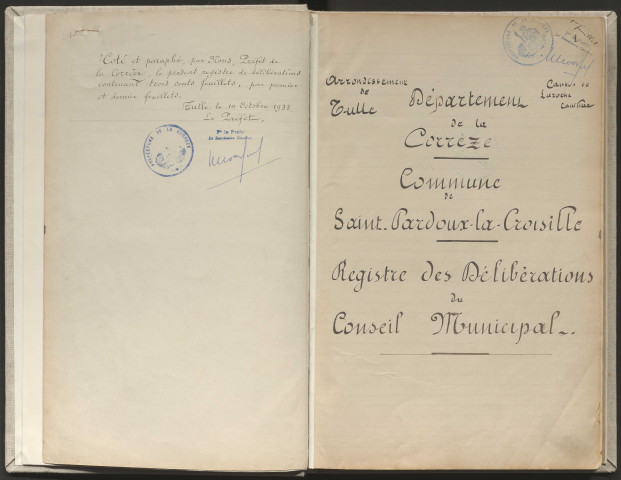 Coté et paraphé, par Nous, Préfet de
la Corrèze, le présent registre de délibérations
contenant trois cents feuillets, par premier
et dernier feuillets.
Tulle, le 10 Octobre 1933
Le Préfet,
Pr le Préfet
PRÉFECTURE DE LA CORRÈZE
Arrondissement
de
Tulle
Canton de
Laroche
Canillac
Département
de la
Corrèze
Commune
de
Saint-Pardoux-la-Croisille
Registre des Délibérations
du
Conseil Municipal.